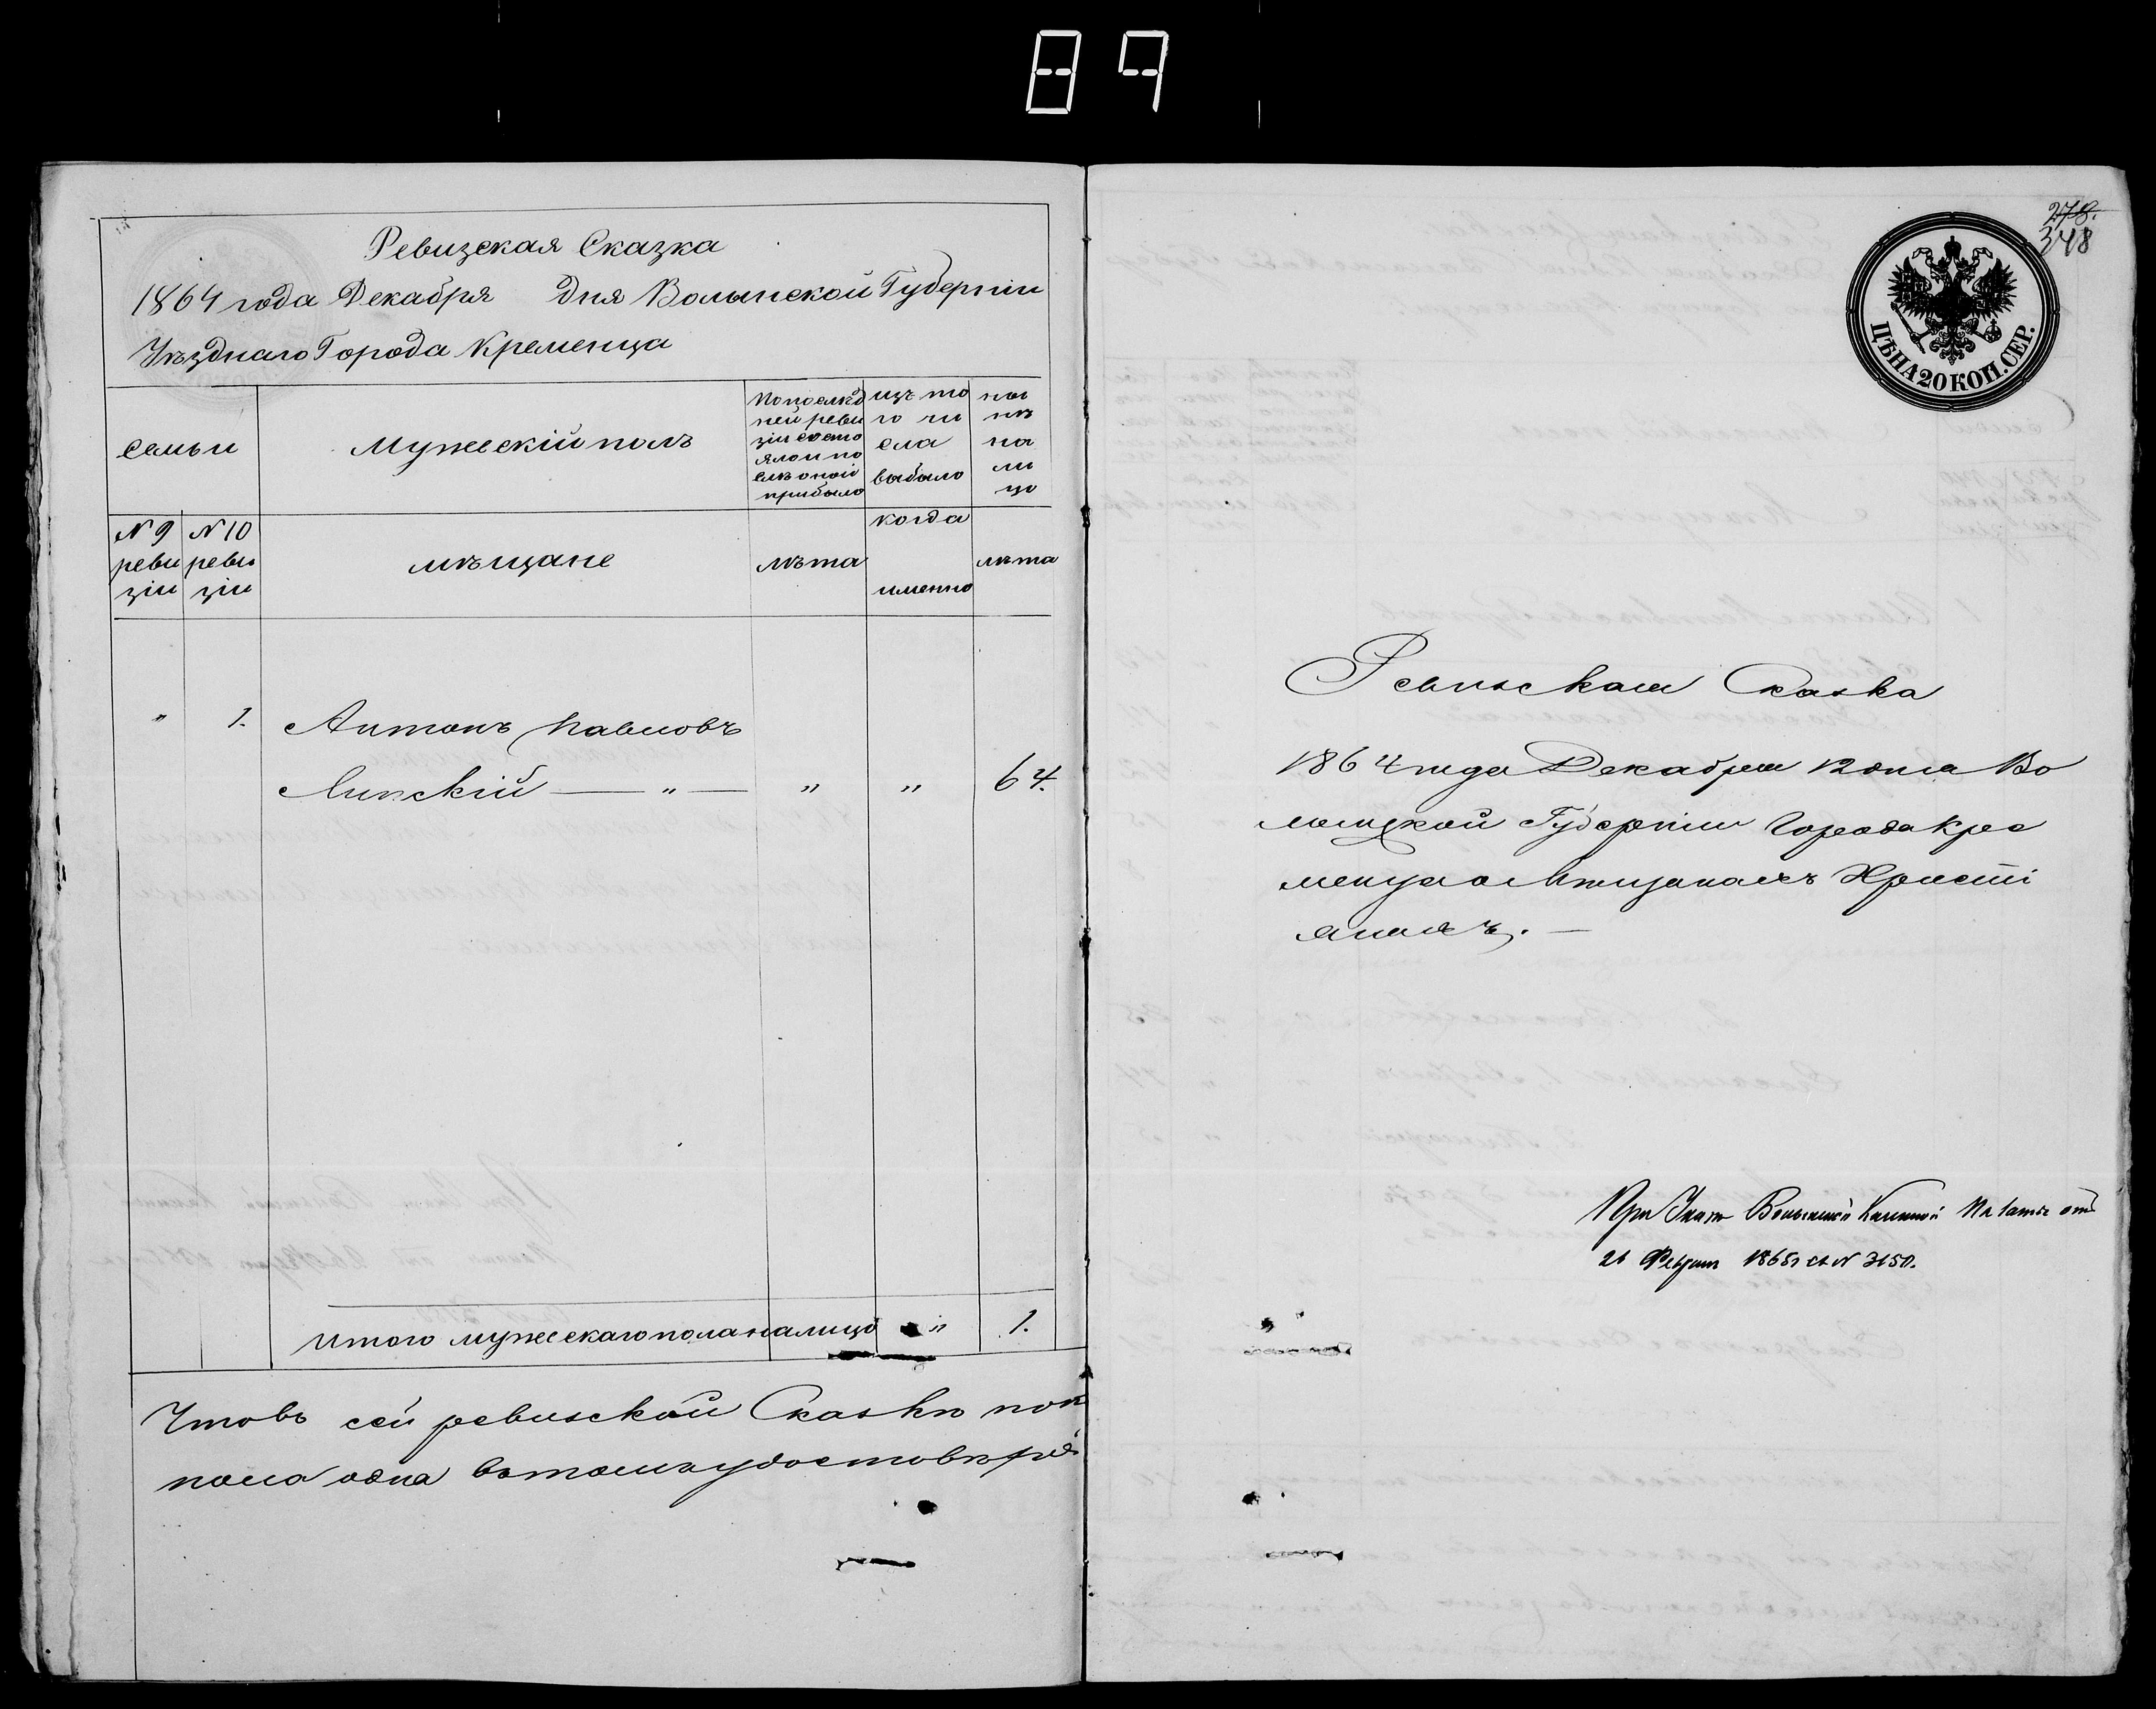 89
Ревизская Сказка
1864 года Декабря дня Волынской Губерніи
Уѣзднаго Города Кременца
семьи
Мужескій полъ
По послѣд
ней реви
зіи состо
яло и по
слѣ оной
прибыло
изъ то
го чи
сла
выбыло
ны
нѣ
на
ли
цо
№ 9
реви
зіи
№ 10
реви
зіи
мѣщане
лѣта
когда
именно
лѣта
" 1. Антонъ Павловъ
Липскій — " — " " 64.
Итого мужескаго пола налицо " 1.
Что въ сей ревизской Сказкѣ
пола одна въ томъ
278.
348
ЦѢНА 20 КОП. СЕР.
Ревизская Сказка
1864 года Декабря 12 дня Во
лынской Губерніи Города Кре
менца о Мѣщанахъ Христі
анахъ. —
При Указѣ Волынской Казенной Палаты отъ
Февраля 1865 г за № 3150.